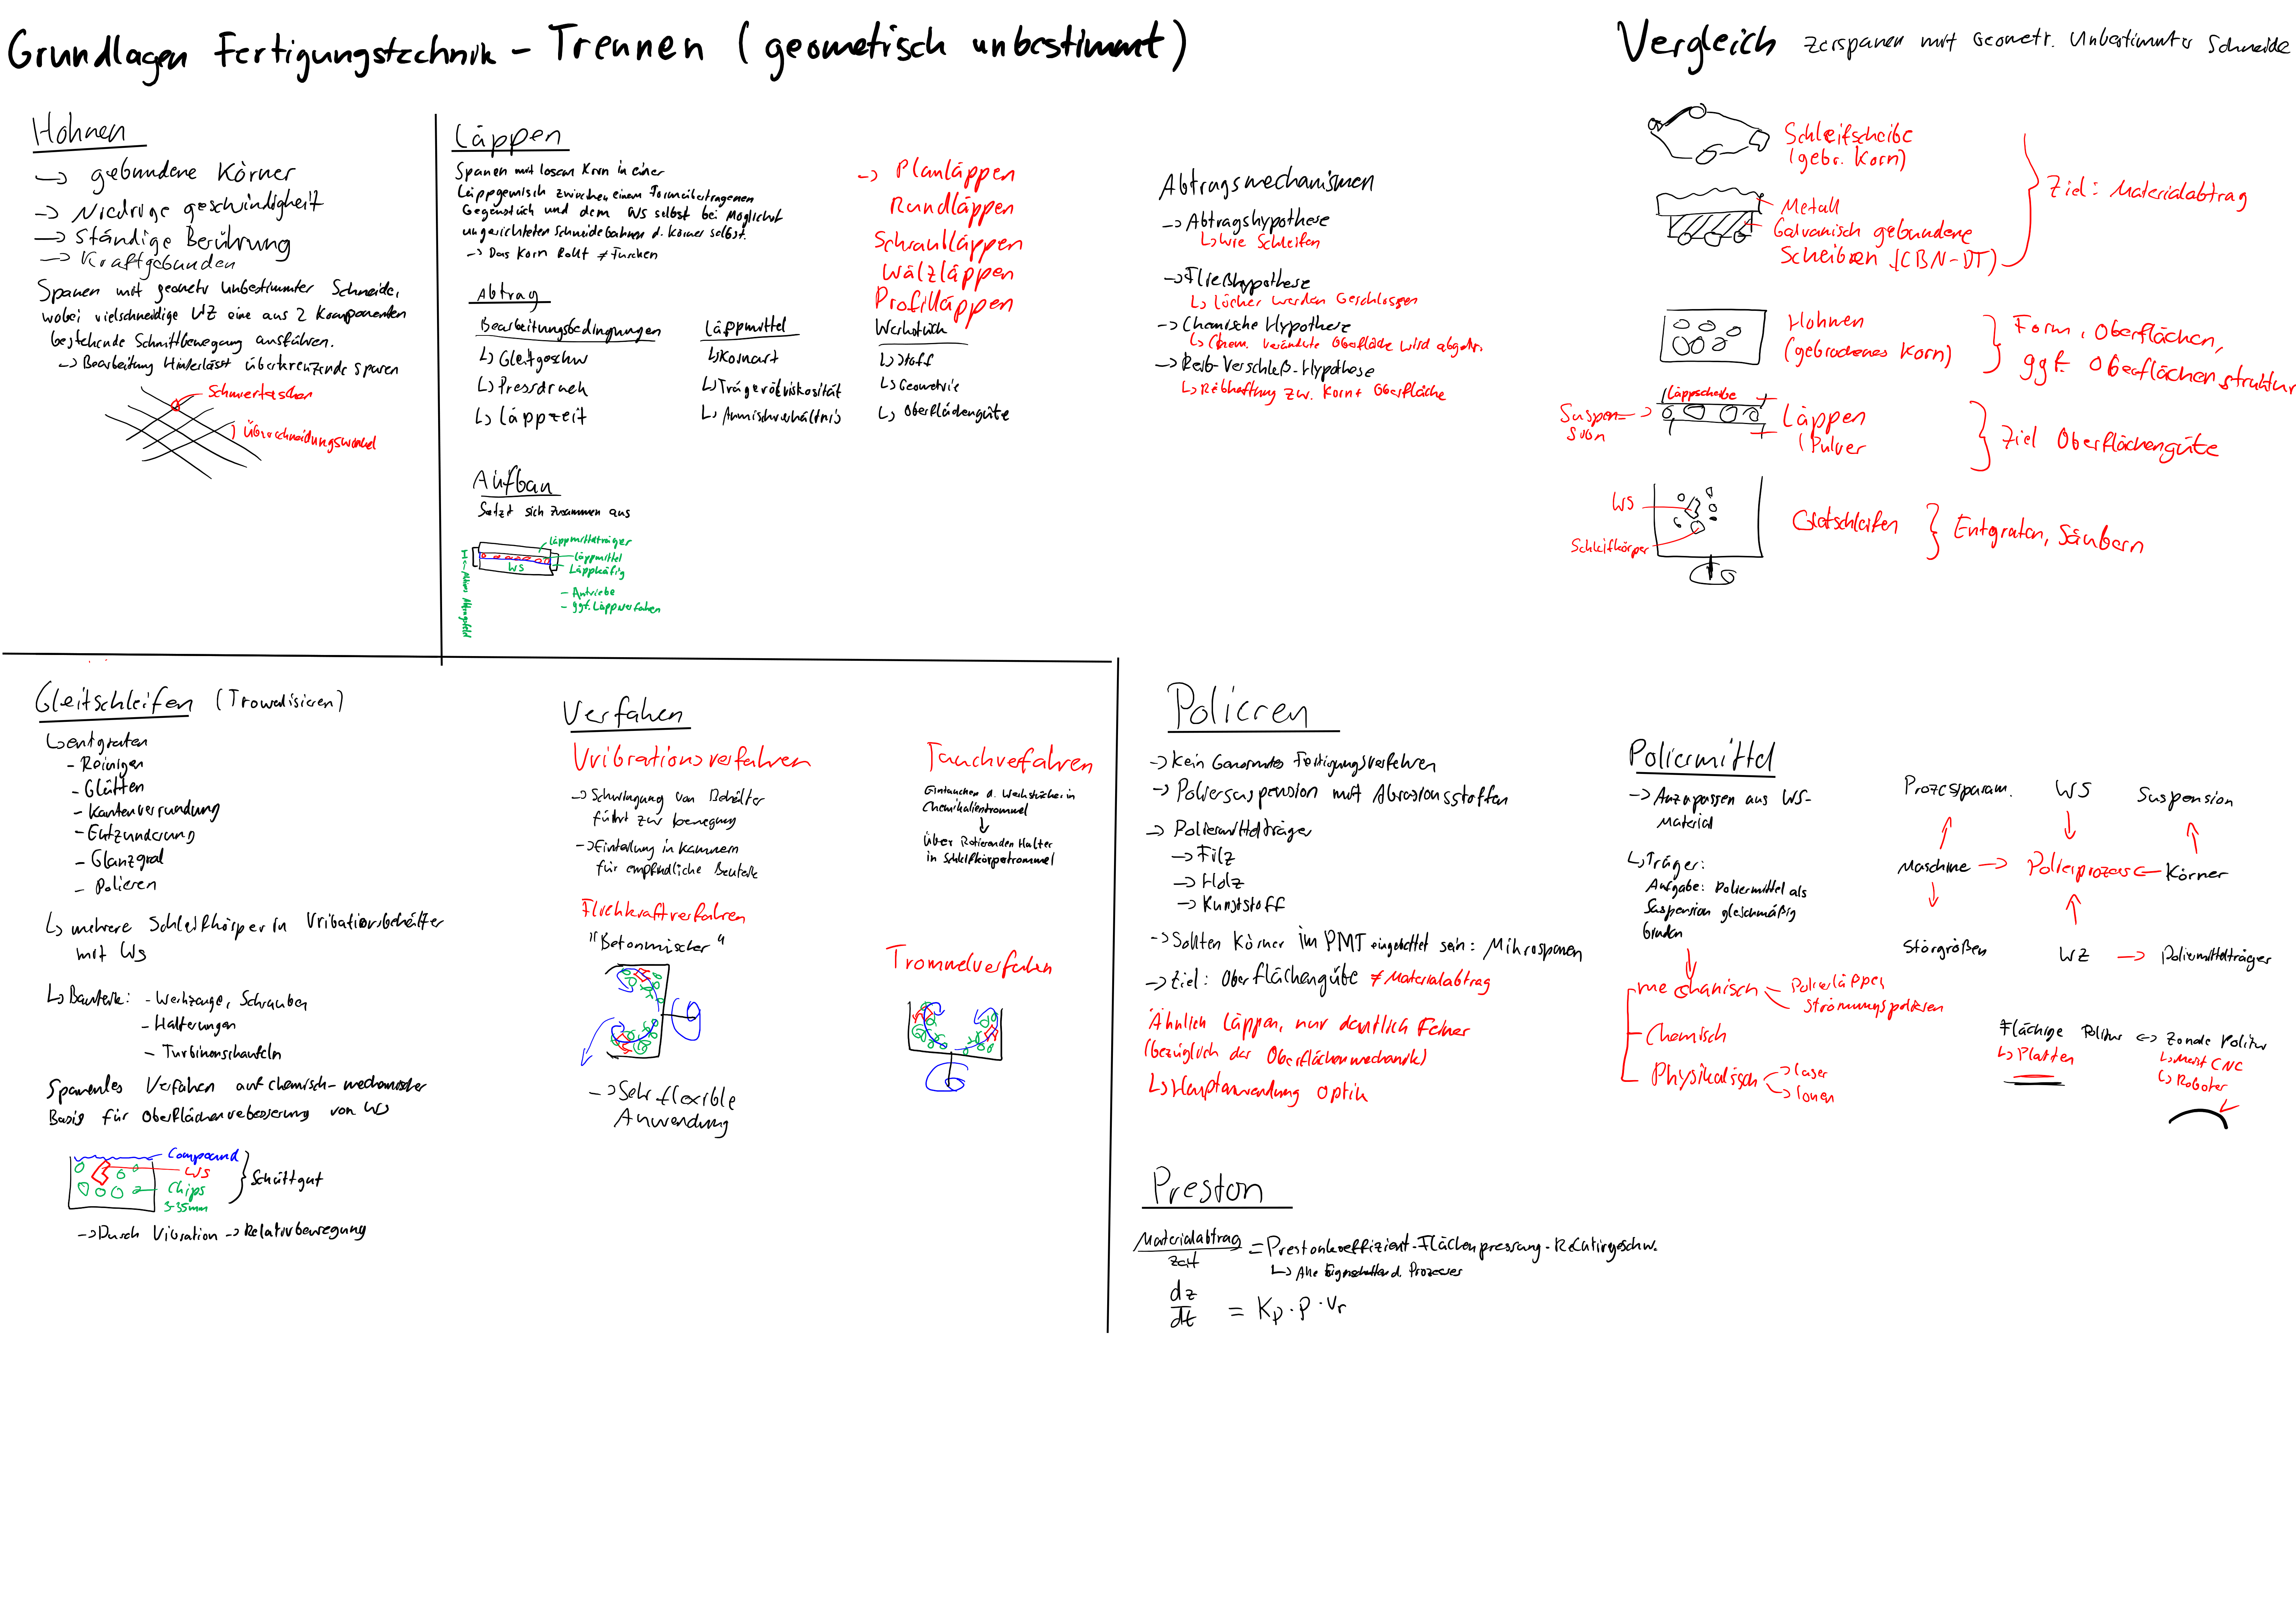 Grundlagen Fertigungstechnik - Trennen (geometisch unbestimmt)
Vergleich Zerspanen mit Geometr. Unbestimmter Schneide
Hohnen
→ gebundene Körner
→ Niedrige geschwindigkeit
→ Ständige Berührung
→ Kraftgebunden
Spanen mit geometr unbestimmter Schneide,
wobei vielschneidige WZ eine aus 2 Komponenten
bestehende Schnittbewegung ausführen.
→ Bearbeitung Hinterlässt überkreuzende spuren
Schmiertaschen
Überschneidungswinkel
Läppen
Spanen mit losem Korn in einer
Läppgemisch zwischen einem Formübertragenen
Gegenstück und dem WS selbst bei Möglichst
ungerichteten Schneidebahnen d. Körner selbst.
→ Das Korn Rollt ≠ Furchen
→ Planläppen
Rundläppen
Schraubläppen
Wälzläppen
Profilläppen
Abtrag
Bearbeitungsbedingungen
↳ Gleitgeschw
↳ Pressdruck
↳ Läppzeit
Läppmittel
↳ Kornart
↳ Trägerölviskosität
↳ Anmischverhältnis
Werkstück
↳ Stoff
↳ Geometrie
↳ Oberflächengüte
Aufbau
Setzt sich zusammen aus
Läppmittelträger
Läppmittel
Läppkäfig
WS
- Antriebe
- ggf. Läppverfahren
Abtragsmechanismen
→ Abtragshypothese
↳ Wie Schleifen
→ Fließhypothese
↳ Löcher werden Geschlossen
→ Chemische Hypothese
↳ Chem. veränderte Oberfläche wird abgetr.
→ Reib-Verschleiß-Hypothese
↳ Reibhaftung zw. Korn + Oberfläche
Schleifscheibe
(geb. Korn)
Metall
Galvanisch gebundene
Scheiben (CBN-DT)
Ziel: Materialabtrag
Hohnen
(gebrochenes Korn)
Form, Oberflächen,
ggf. Oberflächenstruktur
Läppscheibe
Suspen-
sion
Läppen
(Pulver
Ziel Oberflächengüte
WS
Schleifkörper
Gleitschleifen
Entgraten, Säubern
Gleitschleifen (Trowalisieren)
↳ entgraten
- Reinigen
- Glätten
- Kantenverrundung
- Entzunderung
- Glanzgrad
- Polieren
↳ mehrere Schleifkörper in Vribationsbehälter
mit WS
↳ Bauteile: - Werkzeuge, Schrauben
- Halterungen
- Turbinenschaufeln
Spanendes Verfahren auf chemisch-mechanischer
Basis für Oberflächenverbesserung von WS
Compound
WS
Chips
3-35mm
Schüttgut
→ Durch Vibration → Relativbewegung
Verfahen
Vribrationsverfahren
→ Schwingung von Behälter
führt zur bewegung
→ Einteilung in Kammern
für empfindliche Bauteile
Fliehkraftverfahren
"Betonmischer"
→ Sehr flexible
Anwendung
Tauchverfahren
Eintauchen d. Werkstücke in
Chemikalientrommel
↓
Über Rotierenden Halter
in Schleifkörpertrommel
Trommelverfahren
Polieren
→ Kein Genormtes Fertigungsverfahren
→ Poliersuspension mit Abrasionsstoffen
→ Poliermittelträger
→ Filz
→ Holz
→ Kunststoff
→ Sollten Körner im PMT eingebettet sein: Mikrospanen
→ Ziel: Oberflächengüte ≠ Materialabtrag
Ähnlich Läppen, nur deutlich Feiner
(bezüglich der Oberflächenmechanik)
↳ Hauptanwendung Optik
Poliermittel
→ Anzupassen aus WS-
Material
↳ Träger:
Aufgabe: Poliermittel als
Suspension gleichmäßig
binden
mechanisch
Polierläppen
Strömungspolieren
Chemisch
Physikalisch
→ laser
→ Ionen
Prozessparam. WS Suspension
Maschine → Polierprozess ← Körner
Störgrößen WZ → Poliermittelträger
Flächige Politur ↔ Zonale Politur
↳ Platten
↳ Meist CNC
↳ Roboter
Preston
Materialabtrag / Zeit = Prestonkoeffizient · Flächenpressung · Relativgeschw.
↳ Alle Eigenschaften d. Prozesses
dz/dt = Kp · P · Vr